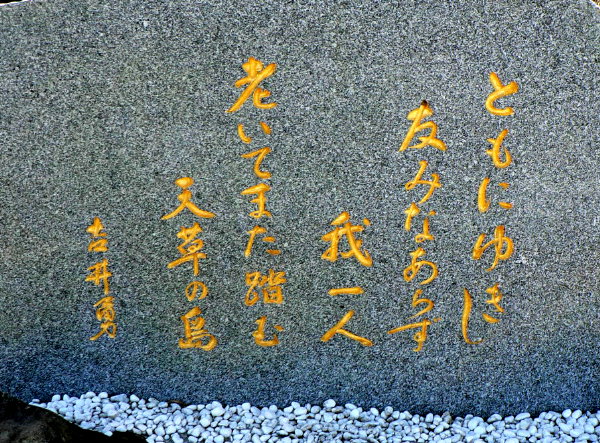 ともにゆきし
友みなあらず
我一人
老いてまた踏む
天草の島
吉井勇